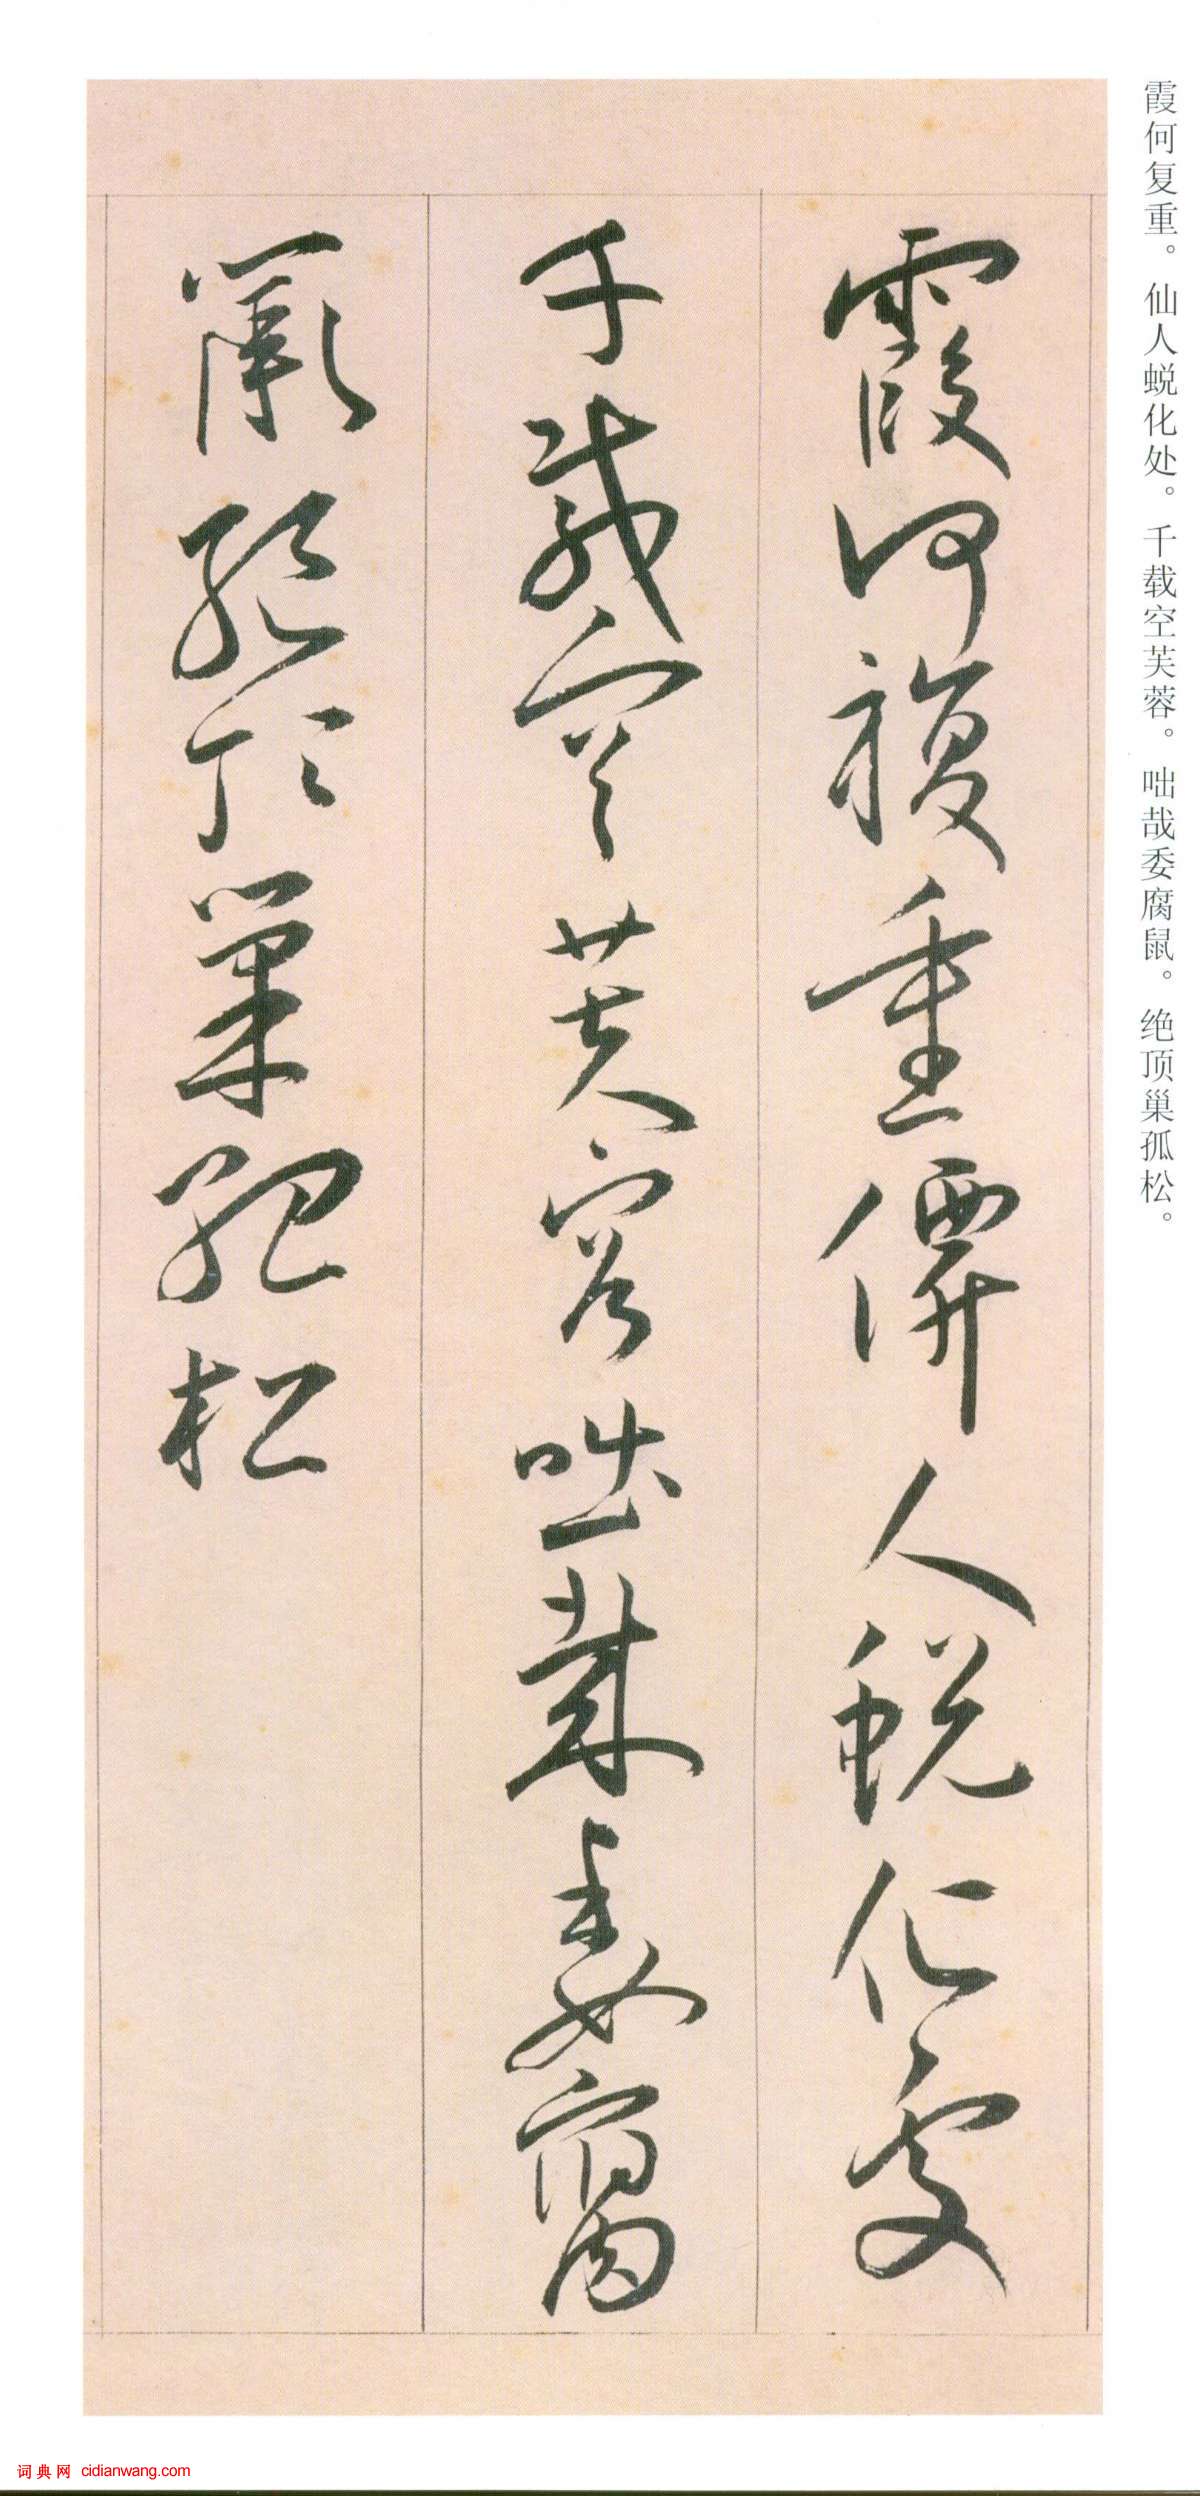 霞何复重。仙人蜕化处。千载空芙蓉。咄哉委腐鼠。绝顶巢孤松。
霞何複重僊人蛻化處
千載空芙容咄哉委腐
鼠絕頂巢孤松
词典网 cidianwang.com